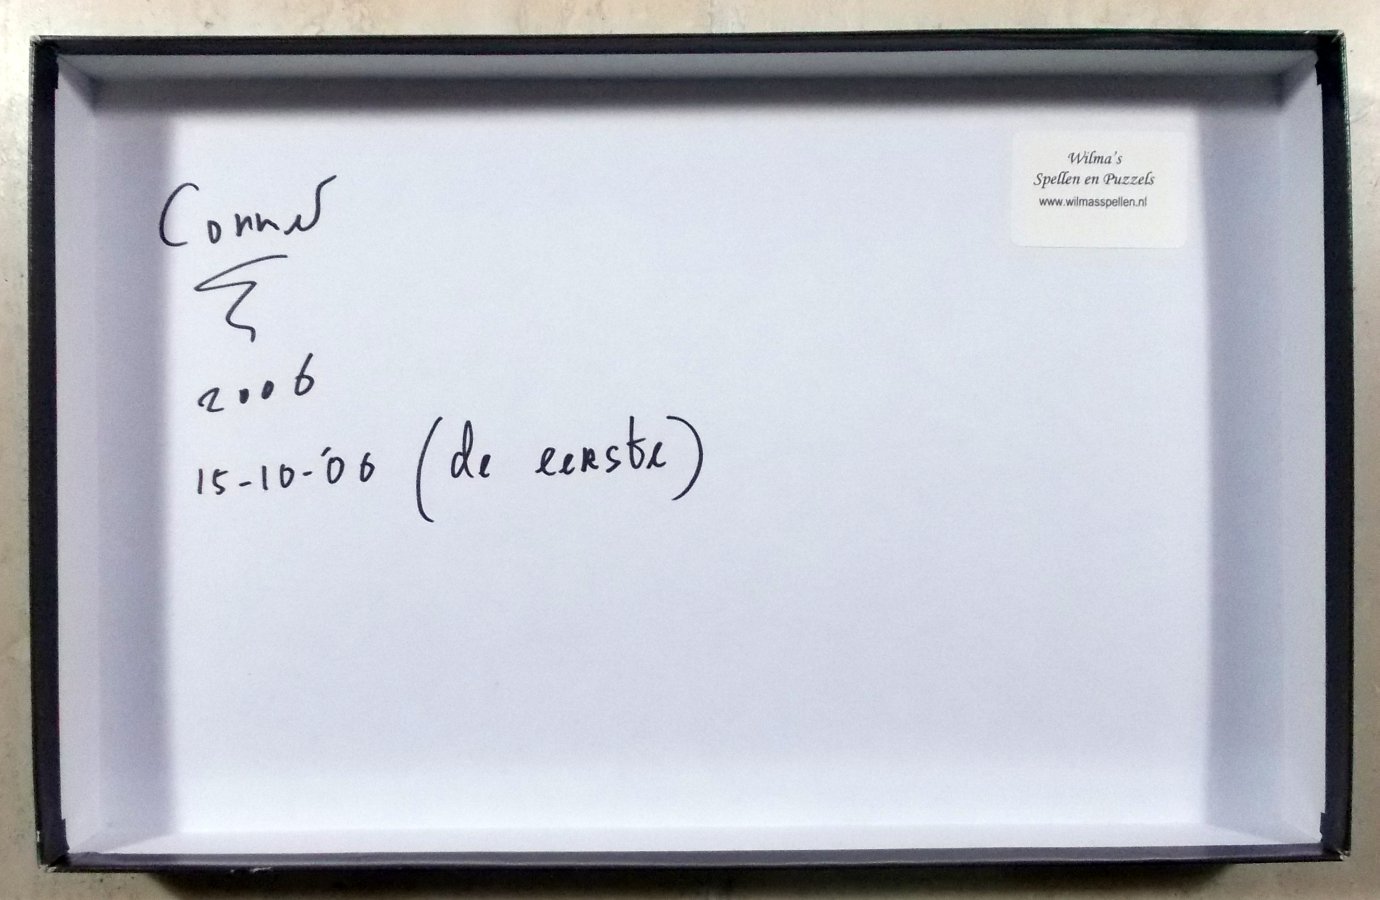 2006
15-10-'06 (de eerste)
Wilma's
Spellen en Puzzels
www.wilmasspellen.nl